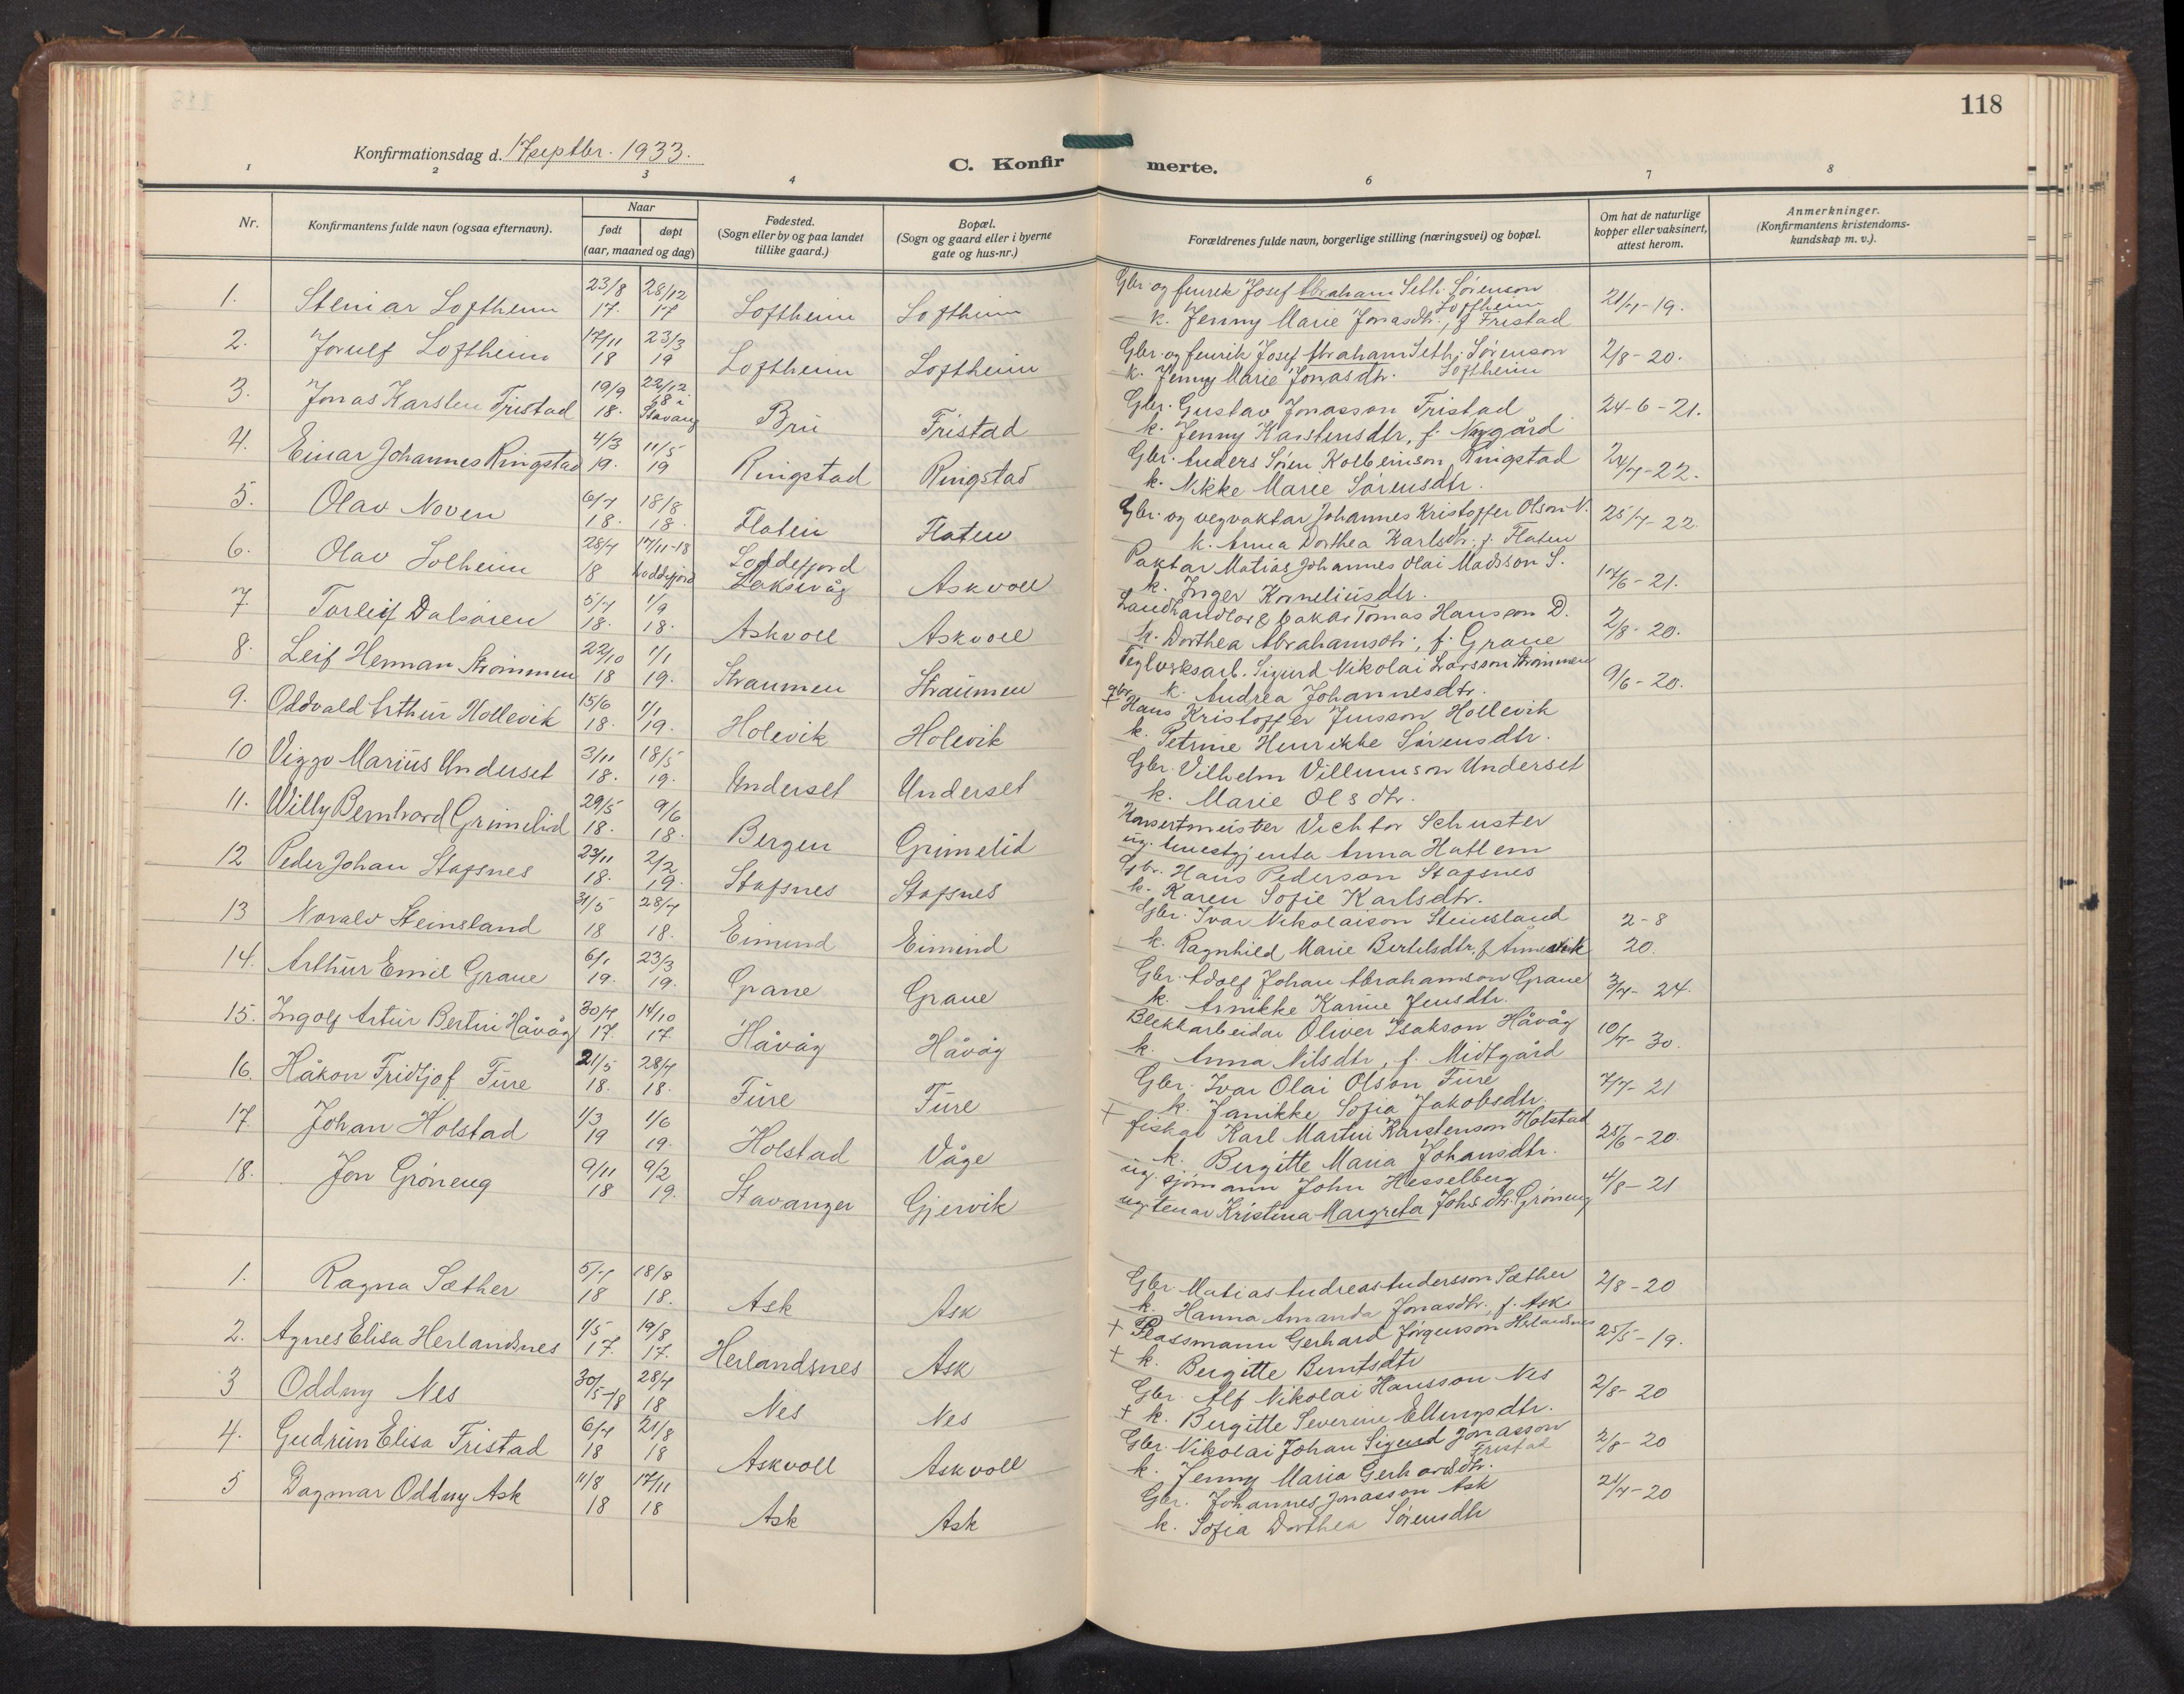 118
Konfirmationsdag d. 17 septbr. 1933.
C. Konfirmerte.
1 2 3 4 6 7 8
Nr.
Konfirmantens fulde navn (ogsaa efternavn).
Naar
født døpt
(aar, maaned og dag)
Fødested.
(Sogn eller by og paa landet
tillike gaard.)
Bopæl.
(Sogn og gaard eller i byerne
gate og hus-nr.)
Forældrenes fulde navn, borgerlige stilling (næringsvei) og bopæl.
Om hat de naturlige
kopper eller vaksinert,
attest herom.
Anmerkninger.
(Konfirmantens kristendoms-
kundskap m. v.).
1. Steinar Loftheim 23/8 17. 28/12 17 Loftheim Loftheim
Gbr og fenrik Josef Abraham Seth. Sørenson Loftheim
k. Jenny Marie Jonasdtr., f. Fristad
21/7-19.
2. Jorulf Loftheim 17/11 18 23/3 19 Loftheim Loftheim
Gbr. og fenrik Josef Abraham Seth. Sørenson Loftheim
k. Jenny Marie Jonasdtr.
2/8-20.
3. Jonas Karsten Fristad 19/9 18. 22/12 18 i Stavang Bru Fristad
Gbr. Gustav Jonasson Fristad
k. Jenny Karstensdtr, f. Nygård
24-6-21.
4. Einar Johannes Ringstad 4/3 19. 11/5 19 Ringstad Ringstad
Gbr. Anders Sören Kolbeinson Ringstad
k. Nikke Marie Sørensdtr.
24/7-22.
5. Olav Noven 6/7 18. 18/8 18. Flaten Flaten
Gbr. og vegvaktar Johannes Kristoffer Olson N.
k. Anna Dorthea Karlsdtr. f. Flaten
25/7-22.
6. Olav Solheim 28/7 18 17/11-18 Loddefjord Loddefjord Laksevåg Askvoll
Paktar Matias Johannes Olai Madsson S.
k. Inger Korneliusdtr.
14/6-21.
7. Torleif Dalsøren 5/7 18. 1/9 18. Askvoll Askvoll
Landhandlar & bakar Tomas Hansson D.
k. Dorthea Abrahamsdtr; f. Grane
2/8-20.
8. Leif Herman Strømmen 22/10 18 1/1 19. Straumen Straumen
Teglverksarb. Sigurd Nikolai Larsson Strømmen
k. Andrea Johannesdtr.
9/6-20.
9. Oddvald Arthur Hollevik 15/6 18. 1/1 19. Holevik Holevik
† gbr. Hans Kristoffer Jensson Hollevik
k. Petrine Henrikke Sørensdtr.
10 Viggo Marius Underset 3/11 18. 18/5 19. Underset Underset
Gbr. Vilhelm Villumson Underset
k. Marie Olsdtr.
11. Willy Bernhard Grimelid 29/5 18. 9/6 18. Bergen Grimelid
Konsertmeister Vichtor Schuster
ug. tenestgjenta Anna Hatlem
12 Peder Johan Stafsnes 23/11 18. 2/2 19. Stafsnes Stafsnes
Gbr. Hans Pederson Stafsnes
k. Karen Sofie Karlsdtr.
13 Noralv Steinsland 31/5 18 28/7 18. Eimind Eimind
Gbr. Ivar Nikolaison Steinsland
k. Ragnhild Marie Bertelsdtr.
2-8 20.
14. Arthur Emil Grane 6/1 19. 23/3 19. Grane Grane
Gbr. Adolf Johan Abrahamson Grane
k. Arnikke Karine Jensdtr.
3/7-24.
15. Ingolf Artur Bertin Håvåg 30/7 17. 14/10 17. Håvåg Håvåg
Blekkarbeidar Oliver Isakson Håvåg
k. Anna Nilsdtr, f. Midtgård
10/7-30.
16. Håkon Fridtjof Fure 21/5 18. 28/7 18. Fure Fure
Gbr. Ivar Olai Olson Fure
k. Janikke Sofia Jakobsdtr.
7/7-21
17. Johan Holstad 1/3 19 1/6 19. Holstad Våge
† fiskar Karl Martin Karstenson Holstad
k. Bergitte Maria Johansdtr.
25/6-20.
18. Jon Grøneng 9/11 18 9/2 19. Stavanger Gjervik
ug. sjømann John Hesselberg
ug. tenar Kristina Margreta Johs.dtr. Grøneng
4/8-21
1. Ragna Sæther 5/7 18 18/8 18. Ask Ask
Gbr Matias Andreas Andersson Sæther
k. Hanna Amanda Jonasdtr. f. Ask
2/8-20
2. Agnes Elisa Herlandsnes 1/5 17. 19/8 17. Herlandsnes Ask
† Plassmann Gerhard Jørgenson Herlandsnes
† k. Bergitte Berntsdtr
25/5-19.
3 Oddny Nes 30/5-18 28/7 18 Nes Nes
Gbr. Alf Nikolai Hansson Nes
† k. Bergitte Severine Ellingsdtr.
2/8-20
4. Gudrun Elisa Fristad 6/7 18 21/8 18 Askvoll Askvoll
Gbr. Nikolai Johan Sigurd Jonasson Fristad
k. Jenny Maria Gerhardsdtr.
2/8-20
5 Dagmar Oddny Ask 11/8 18 17/11 18 Ask Ask
Gbr. Johannes Jonasson Ask
k. Sofia Dorthea Sørensdtr
21/7-20